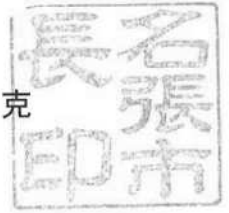 克
名張市
長印